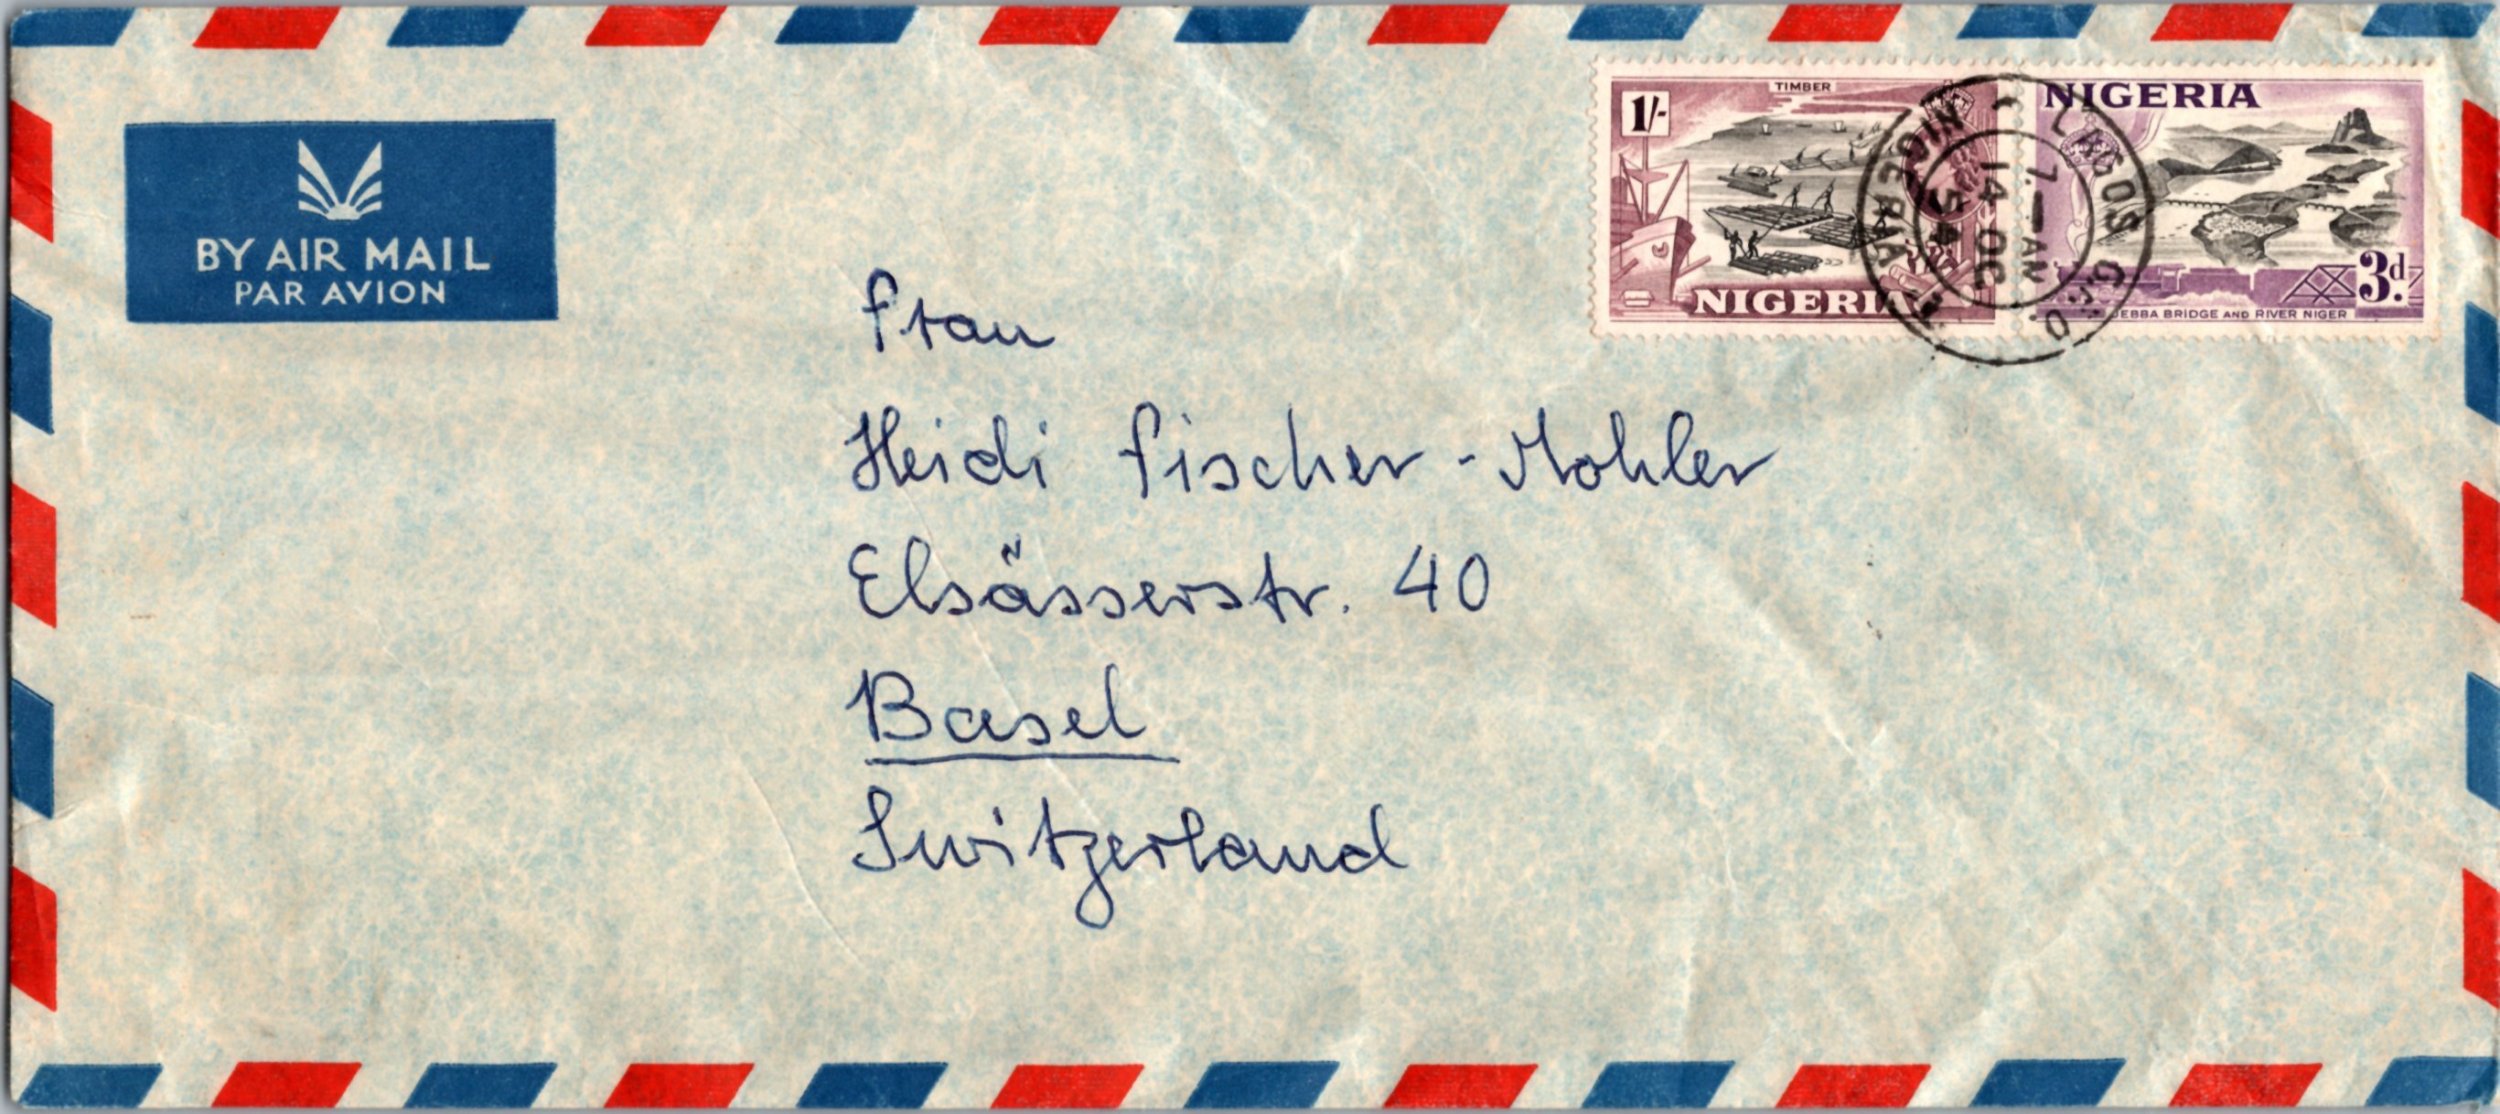 BY AIR MAIL
PAR AVION
TIMBER
1/-
NIGERIA
NIGERIA
3d.
JEBBA BRIDGE AND RIVER NIGER
LAGOS G.P.O.
7.—AM
14 OC
54
NIGERIA
Frau
Heidi Fischer-Mohler
Elsässerstr. 40
Basel
Switzerland